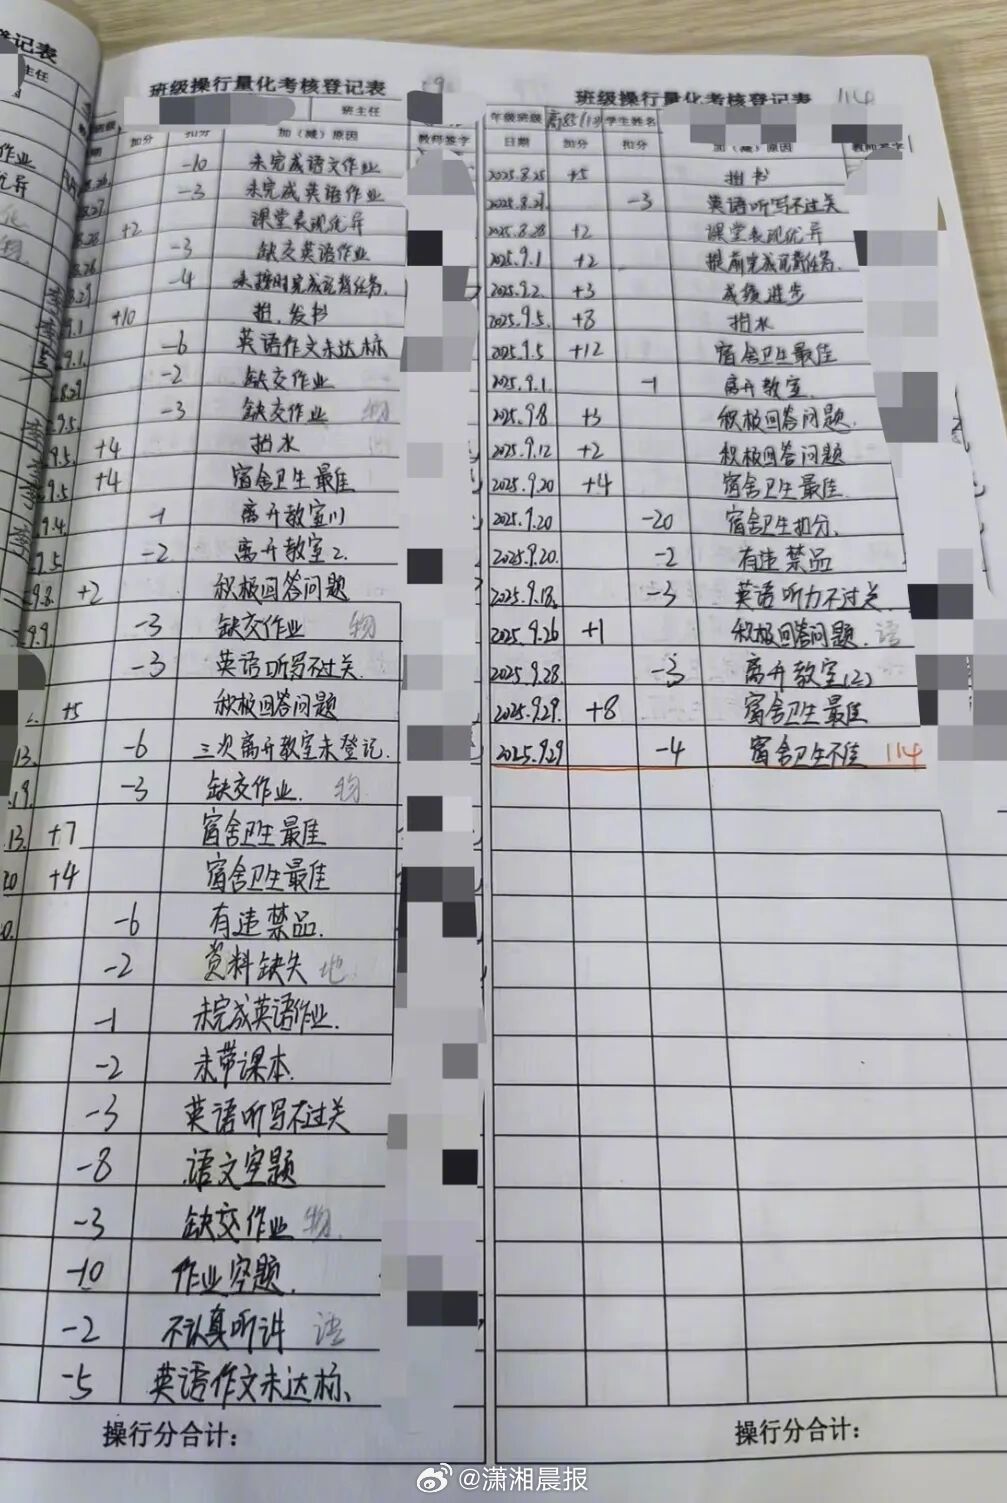 登记表
班级操行量化考核登记表
班主任
加分 扣分 加（减）原因 教师签字
-10 未完成语文作业
-3 未完成英语作业
+2 课堂表现优异
-3 缺交英语作业
-4 未按时完成记背任务.
+10 担.发书
-6 英语作文未达标
-2 缺交作业
-3 缺交作业 物
+4 担水
+4 宿舍卫生最佳
-1 离开教室
-2 离开教室2.
+2 积极回答问题
-3 缺交作业 物
-3 英语听写不过关.
+5 积极回答问题
-6 三次离开教室未登记.
-3 缺交作业. 物
+7 宿舍卫生最佳
+4 宿舍卫生最佳
-6 有违禁品.
-2 资料缺失 地
-1 未完成英语作业.
-2 未带课本.
-3 英语听写不过关
-8 语文空题
-3 缺交作业 物.
-10 作业空题.
-2 不认真听讲 语
-5 英语作文未达标、
操行分合计：
班级操行量化考核登记表 114
年级班级 学生姓名
日期 加分 扣分 加（减）原因 教师签字
2025.8.25 +5 担书
2025.8.27. -3 英语听写不过关
2025.8.28 +2 课堂表现优异
2025.9.1 +2 提前完成记背任务.
2025.9.2. +3 成绩进步
2025.9.5. +8 担水
2025.9.5 +12 宿舍卫生最佳
2025.9.1. -1 离开教室.
2025.9.8 +3 积极回答问题.
2025.9.12 +2 积极回答问题
2025.9.20 +4 宿舍卫生最佳
2025.9.20 -20 宿舍卫生扣分.
2025.9.20. -2 有违禁品
2025.9.18. -3 英语听力不过关.
2025.9.26 +1 积极回答问题. 语
2025.9.28. -3 离开教室(2)
2025.9.29. +8 宿舍卫生最佳
2025.9.29 -4 宿舍卫生不佳 114
操行分合计：
@潇湘晨报